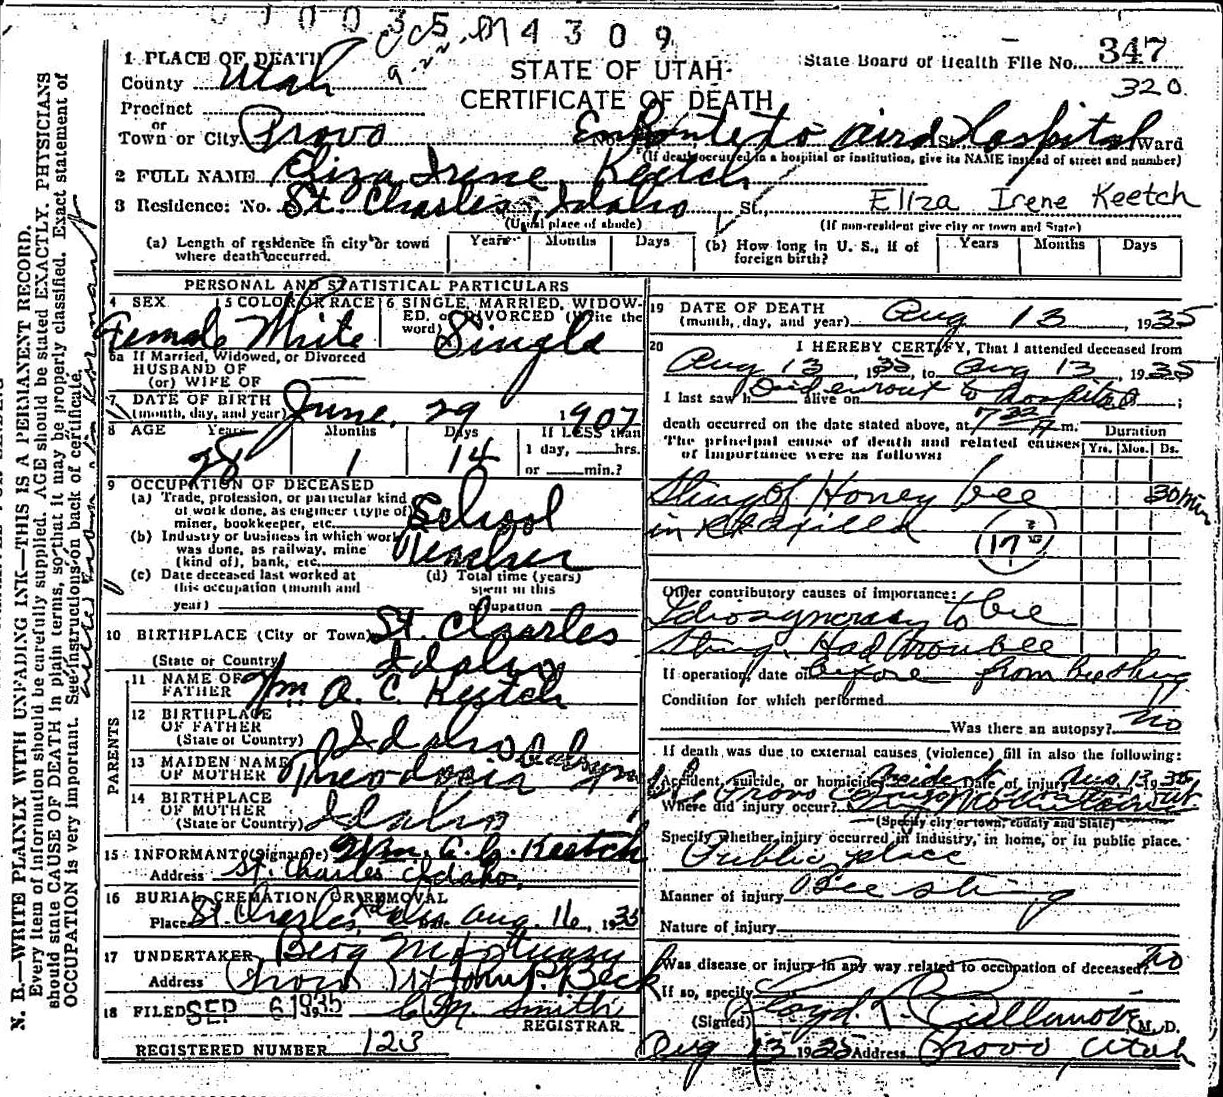 4 3 0 9
STATE OF UTAH
CERTIFICATE OF DEATH
State Board of Health File No. 347
320
1 PLACE OF DEATH
County Utah
Precinct
or
Town or City Provo Enroute to Aird Hospital St. Ward
(If death occurred in a hospital or institution, give its NAME instead of street and number)
2 FULL NAME Eliza Irene Keetch
3 Residence: No. St. Charles, Idaho St., Eliza Irene Keetch
(Usual place of abode) (If non-resident give city or town and State)
(a) Length of residence in city or town where death occurred. Years Months Days
(b) How long in U. S., if of foreign birth? Years Months Days
PERSONAL AND STATISTICAL PARTICULARS
4 SEX Female
5 COLOR OR RACE White
6 SINGLE, MARRIED, WIDOWED, or DIVORCED (Write the word) Single
6a If Married, Widowed, or Divorced
HUSBAND OF
(or) WIFE OF
7 DATE OF BIRTH
(month, day, and year) June, 29 1907
8 AGE Years Months Days If LESS than
28 1 14 1 day, hrs.
or min.?
9 OCCUPATION OF DECEASED
(a) Trade, profession, or particular kind
of work done, as engineer (type of)
miner, bookkeeper, etc. School
(b) Industry or business in which work
was done, as railway, mine
(kind of), bank, etc. Teacher
(c) Date deceased last worked at
this occupation (month and
year)
(d) Total time (years)
spent in this
occupation
10 BIRTHPLACE (City or Town) St. Charles
(State or Country) Idaho
PARENTS
11 NAME OF
FATHER Wm A. C. Keetch
12 BIRTHPLACE
OF FATHER
(State or Country) Idaho
13 MAIDEN NAME
OF MOTHER Theodocia
14 BIRTHPLACE
OF MOTHER
(State or Country) Idaho
15 INFORMANT (Signature) Wm. A. C. Keetch
Address St. Charles Idaho.
16 BURIAL, CREMATION OR REMOVAL
Place St. Charles, Idaho Date Aug. 16, 1935
17 UNDERTAKER Berg Mortuary
Address Provo Ut John P. Beck
18 FILED SEP 6 1935 C. M. Smith
REGISTRAR
REGISTERED NUMBER 123
19 DATE OF DEATH
(month, day, and year) Aug 13, 1935
20 I HEREBY CERTIFY, That I attended deceased from
Aug 13, 1935, to Aug 13, 1935
I last saw h alive on Died enrout to hospital;
death occurred on the date stated above, at m. Duration
The principal cause of death and related causes
of importance were as follows: Yrs. Mos. Ds.
Sting of Honey bee 30 min
in
17
Other contributory causes of importance:
Idiosyncrasy to bee
Sting. Had trouble
If operation, date of before from bee sting
Condition for which performed
Was there an autopsy? No
If death was due to external causes (violence) fill in also the following:
Accident, suicide, or homicide? Accident Date of injury Aug. 13 1935
Where did injury occur?
(Specify city or town, county and State)
Specify whether injury occurred in industry, in home, or in public place.
Public place
Manner of injury Bee sting
Nature of injury
Was disease or injury in any way related to occupation of deceased? No
If so, specify
(Signed) Lloyd L. Cullimore M. D.
Aug 13 1935 Address Provo, Utah
N. B.—WRITE PLAINLY WITH UNFADING INK—THIS IS A PERMANENT RECORD.
Every item of information should be carefully supplied. AGE should be stated EXACTLY. PHYSICIANS
should state CAUSE OF DEATH in plain terms, so that it may be properly classified. Exact statement of
OCCUPATION is very important. See instructions on back of certificate.